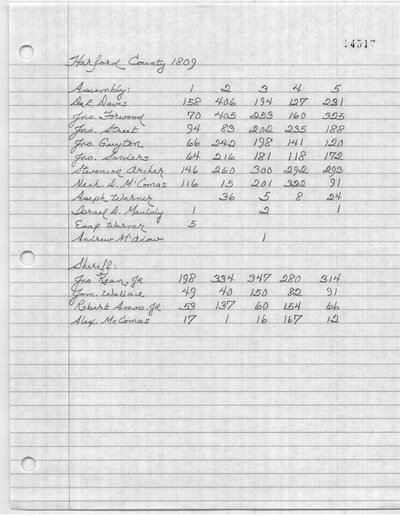 14517
Harford County 1809
Assembly: 1 2 3 4 5
Dr E Davis 158 406 194 127 231
Jno. Forwood 70 405 253 160 325
Jno. Street 94 83 202 235 188
Jno. Guyton 66 242 198 141 120
Jno. Sanders 64 216 181 118 172
Stevenson Archer 146 260 300 292 293
Nech. D. McComas 116 15 201 322 91
Aseph Warner 36 5 8 24
Israel D. Maulsby 1 2 1
Esap Warner 5
Andrew M'Adow 1
Sheriff:
Jno. Kean Jr 198 334 347 280 314
Jam. Wallace 49 40 150 82 91
Robert Amos Jr 53 137 60 154 66
Alex. McComas 17 1 16 167 12